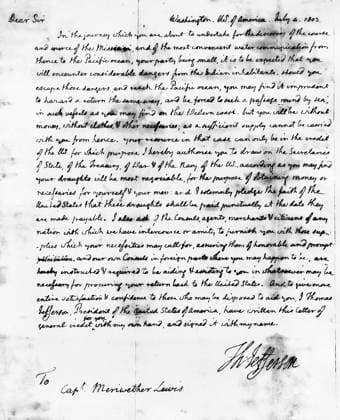 Dear Sir
Washington. US. of America. July 4. 1803.
In the journey which you are about to undertake for the discovery of the course
and source of the Missisipi, and of the most convenient water communication from
thence to the Pacific ocean, your party being small, it is to be expected that you
will encounter considerable dangers from the Indian inhabitants. should you
escape those dangers and reach the Pacific ocean, you may find it imprudent
to hazard a return the same way, and be forced to seek a passage round by sea,
in such vessels as you may find on the Western coast. but you will be without
money, without clothes, & other necessaries; as a sufficient supply cannot be carried
with you from hence. your resource in that case can only be in the credit
of the US. for which purpose I hereby authorise you to draw on the Secretaries
of State, of the Treasury, of War & of the Navy of the US. according as you may find
your draughts will be most negociable, for the purpose of obtaining money or
necessaries for yourself & your men: and I solemnly pledge the faith of the
United States that these draughts shall be paid punctually at the date they
are made payable. I also ask of the Consuls, agents, merchants & citizens of any
nation with which we have intercourse or amity, to furnish you with those sup-
plies which your necessities may call for, assuring them of honorable and prompt
and our own Consuls in foreign parts where you may happen to be, are
hereby instructed & required to be aiding & assisting to you in whatsoever may be
necessary for procuring your return back to the United States. And to give more
entire satisfaction & confidence to those who may be disposed to aid you, I Thomas
Jefferson, President of the United States of America, have written this letter of
general credit for you with my own hand, and signed it with my name.
Th: Jefferson
To
Capt. Meriwether Lewis